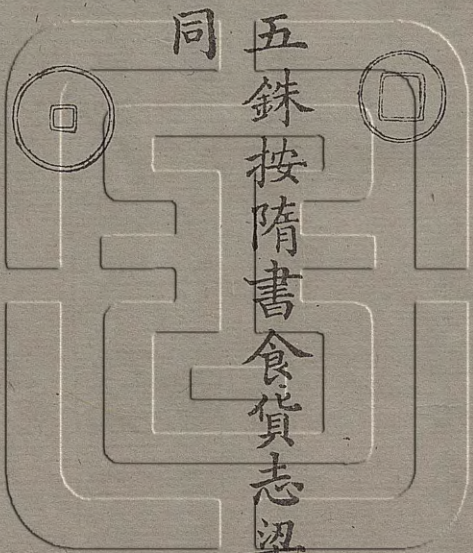 五銖按隋書食貨志梁
同